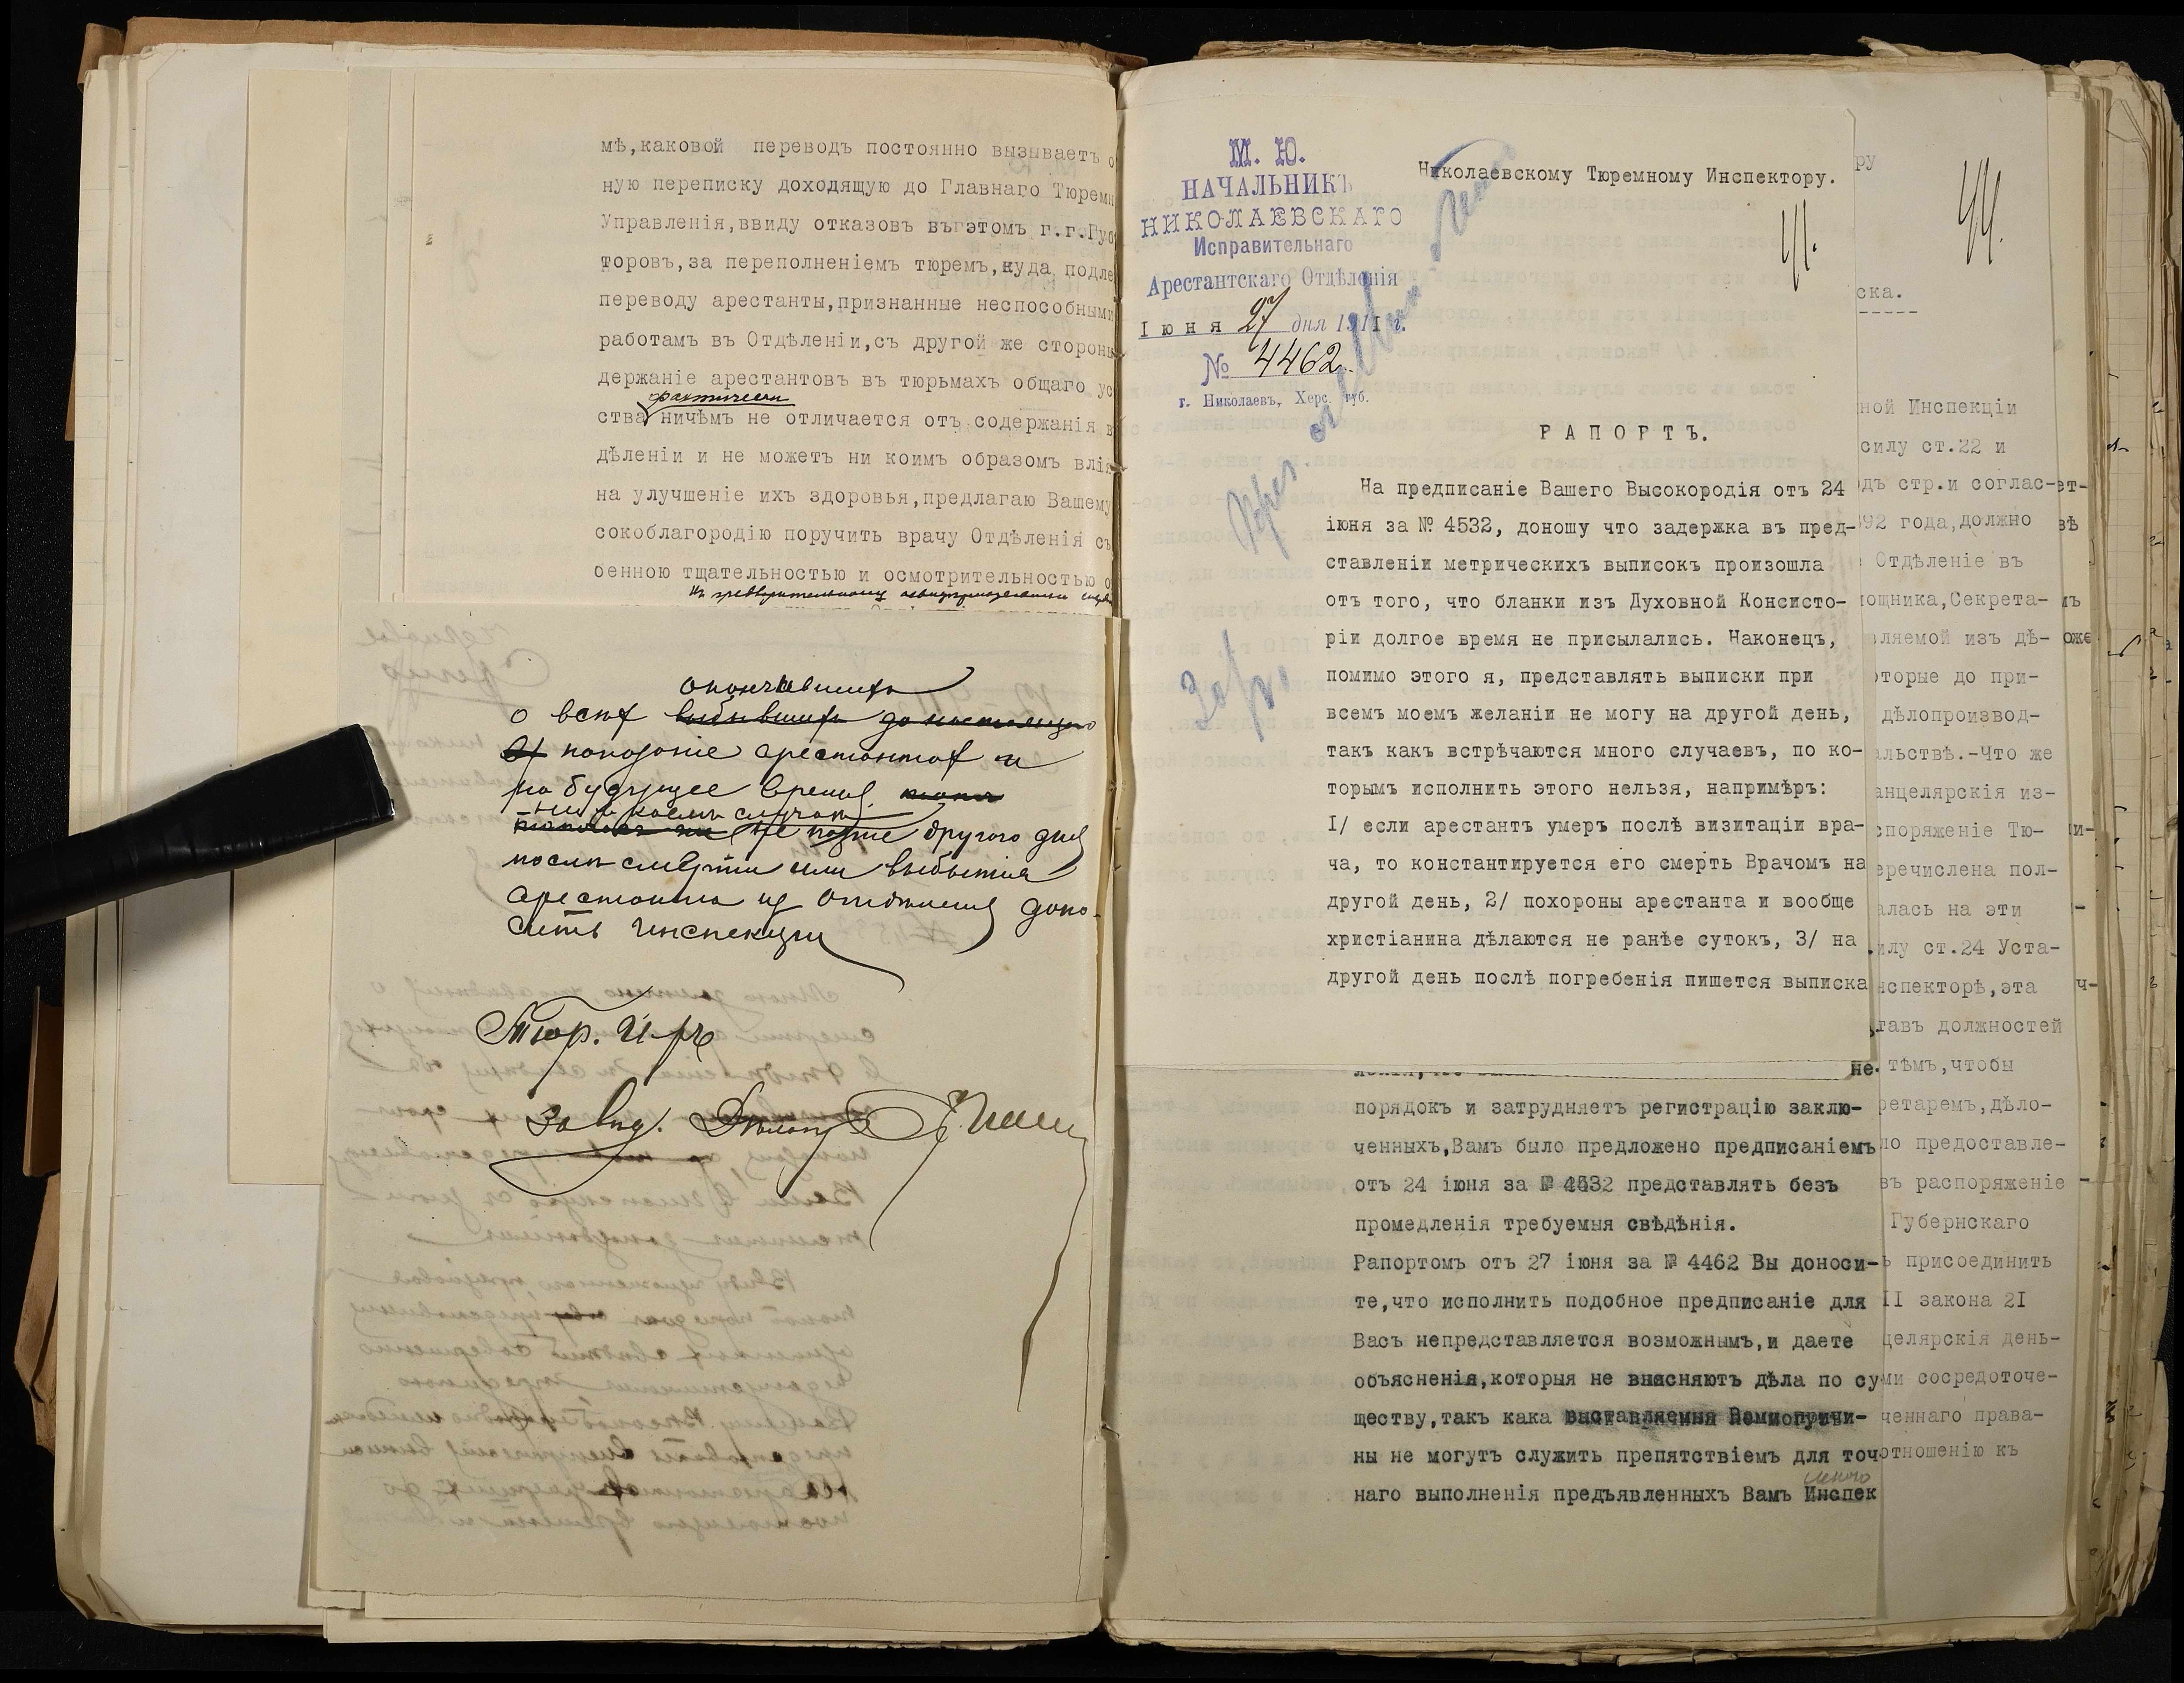 мѣ,каковой переводъ постоянно вызываетъ о
ную переписку доходящую до Главнаго Тюремн
Управленія,ввиду отказовъ въ этомъ г.г.Губ
торовъ,за переполненіемъ тюремъ,куда подле
переводу арестанты,признанные неспособными
работамъ въ Отдѣленіи,съ другой же стороны
держаніе арестантовъ въ тюрьмахъ общаго ус
фактически
ства ничѣмъ не отличается отъ содержанія в
дѣленіи и не можетъ ни коимъ образомъ влія
на улучшеніе ихъ здоровья,предлагаю Вашему
сокоблагородію поручить врачу Отдѣленія съ
бенною тщательностью и осмотрительностью о
о всѣх выбывшихъ до настоящаго
наказаніе арестантов и
на будущее время
ни в коемъ случаѣ
не позже другого дня
послѣ смерти или выбытія
арестанта из Отдѣленія доно-
сить Инспекціи
Тюр. И-ръ
Завѣд.
М. Ю.
НАЧАЛЬНИКЪ
НИКОЛАЕВСКАГО
Исправительнаго
Арестантскаго Отдѣленія
Іюня 27 дня 1911 г.
№ 4462.
г. Николаевъ, Херс. губ.
Николаевскому Тюремному Инспектору.
41.
44.
РАПОРТЪ.
На предписаніе Вашего Высокородія отъ 24
іюня за № 4532, доношу что задержка въ пред-
ставленіи метрическихъ выписокъ произошла
отъ того, что бланки изъ Духовной Консисто-
ріи долгое время не присылались. Наконецъ,
помимо этого я, представлять выписки при
всемъ моемъ желаніи не могу на другой день,
такъ какъ встрѣчаются много случаевъ, по ко-
торымъ исполнить этого нельзя, напримѣръ:
I/ если арестантъ умеръ послѣ визитаціи вра-
ча, то константируется его смерть Врачомъ на
другой день, 2/ похороны арестанта и вообще
христіанина дѣлаются не ранѣе сутокъ, 3/ на
другой день послѣ погребенія пишется выписка
не
порядокъ и затрудняетъ регистрацію заклю-
ченныхъ,Вамъ было предложено предписаніемъ
отъ 24 іюня за № 4532 представлять безъ
промедленія требуемыя свѣдѣнія.
Рапортомъ отъ 27 іюня за № 4462 Вы доноси-
те,что исполнить подобное предписаніе для
Васъ непредставляется возможнымъ,и даете
объясненія,которыя не выясняютъ дѣла по су
ществу,такъ кака выставляемыя Вами причи-
ны не могутъ служить препятствіемъ для точ
наго выполненія предъявленныхъ Вамъ Инспек
ру
ска.
ной Инспекціи
силу ст.22 и
дъ стр.и соглас-
92 года,должно
Отдѣленіе въ
ощника,Секрета-
вляемой изъ дѣ-
оторые до при-
дѣлопроизвод-
альствѣ.-Что же
анцелярскія из-
споряженіе Тю-
еречислена пол-
алась на эти
илу ст.24 Уста-
нспекторѣ,эта
тавъ должностей
тѣмъ,чтобы
ретаремъ,дѣло-
но предоставле-
въ распоряженіе
Губернскаго
ъ присоединить
II закона 2I
целярскія день-
ми сосредоточе-
ченнаго права-
отношенію къ